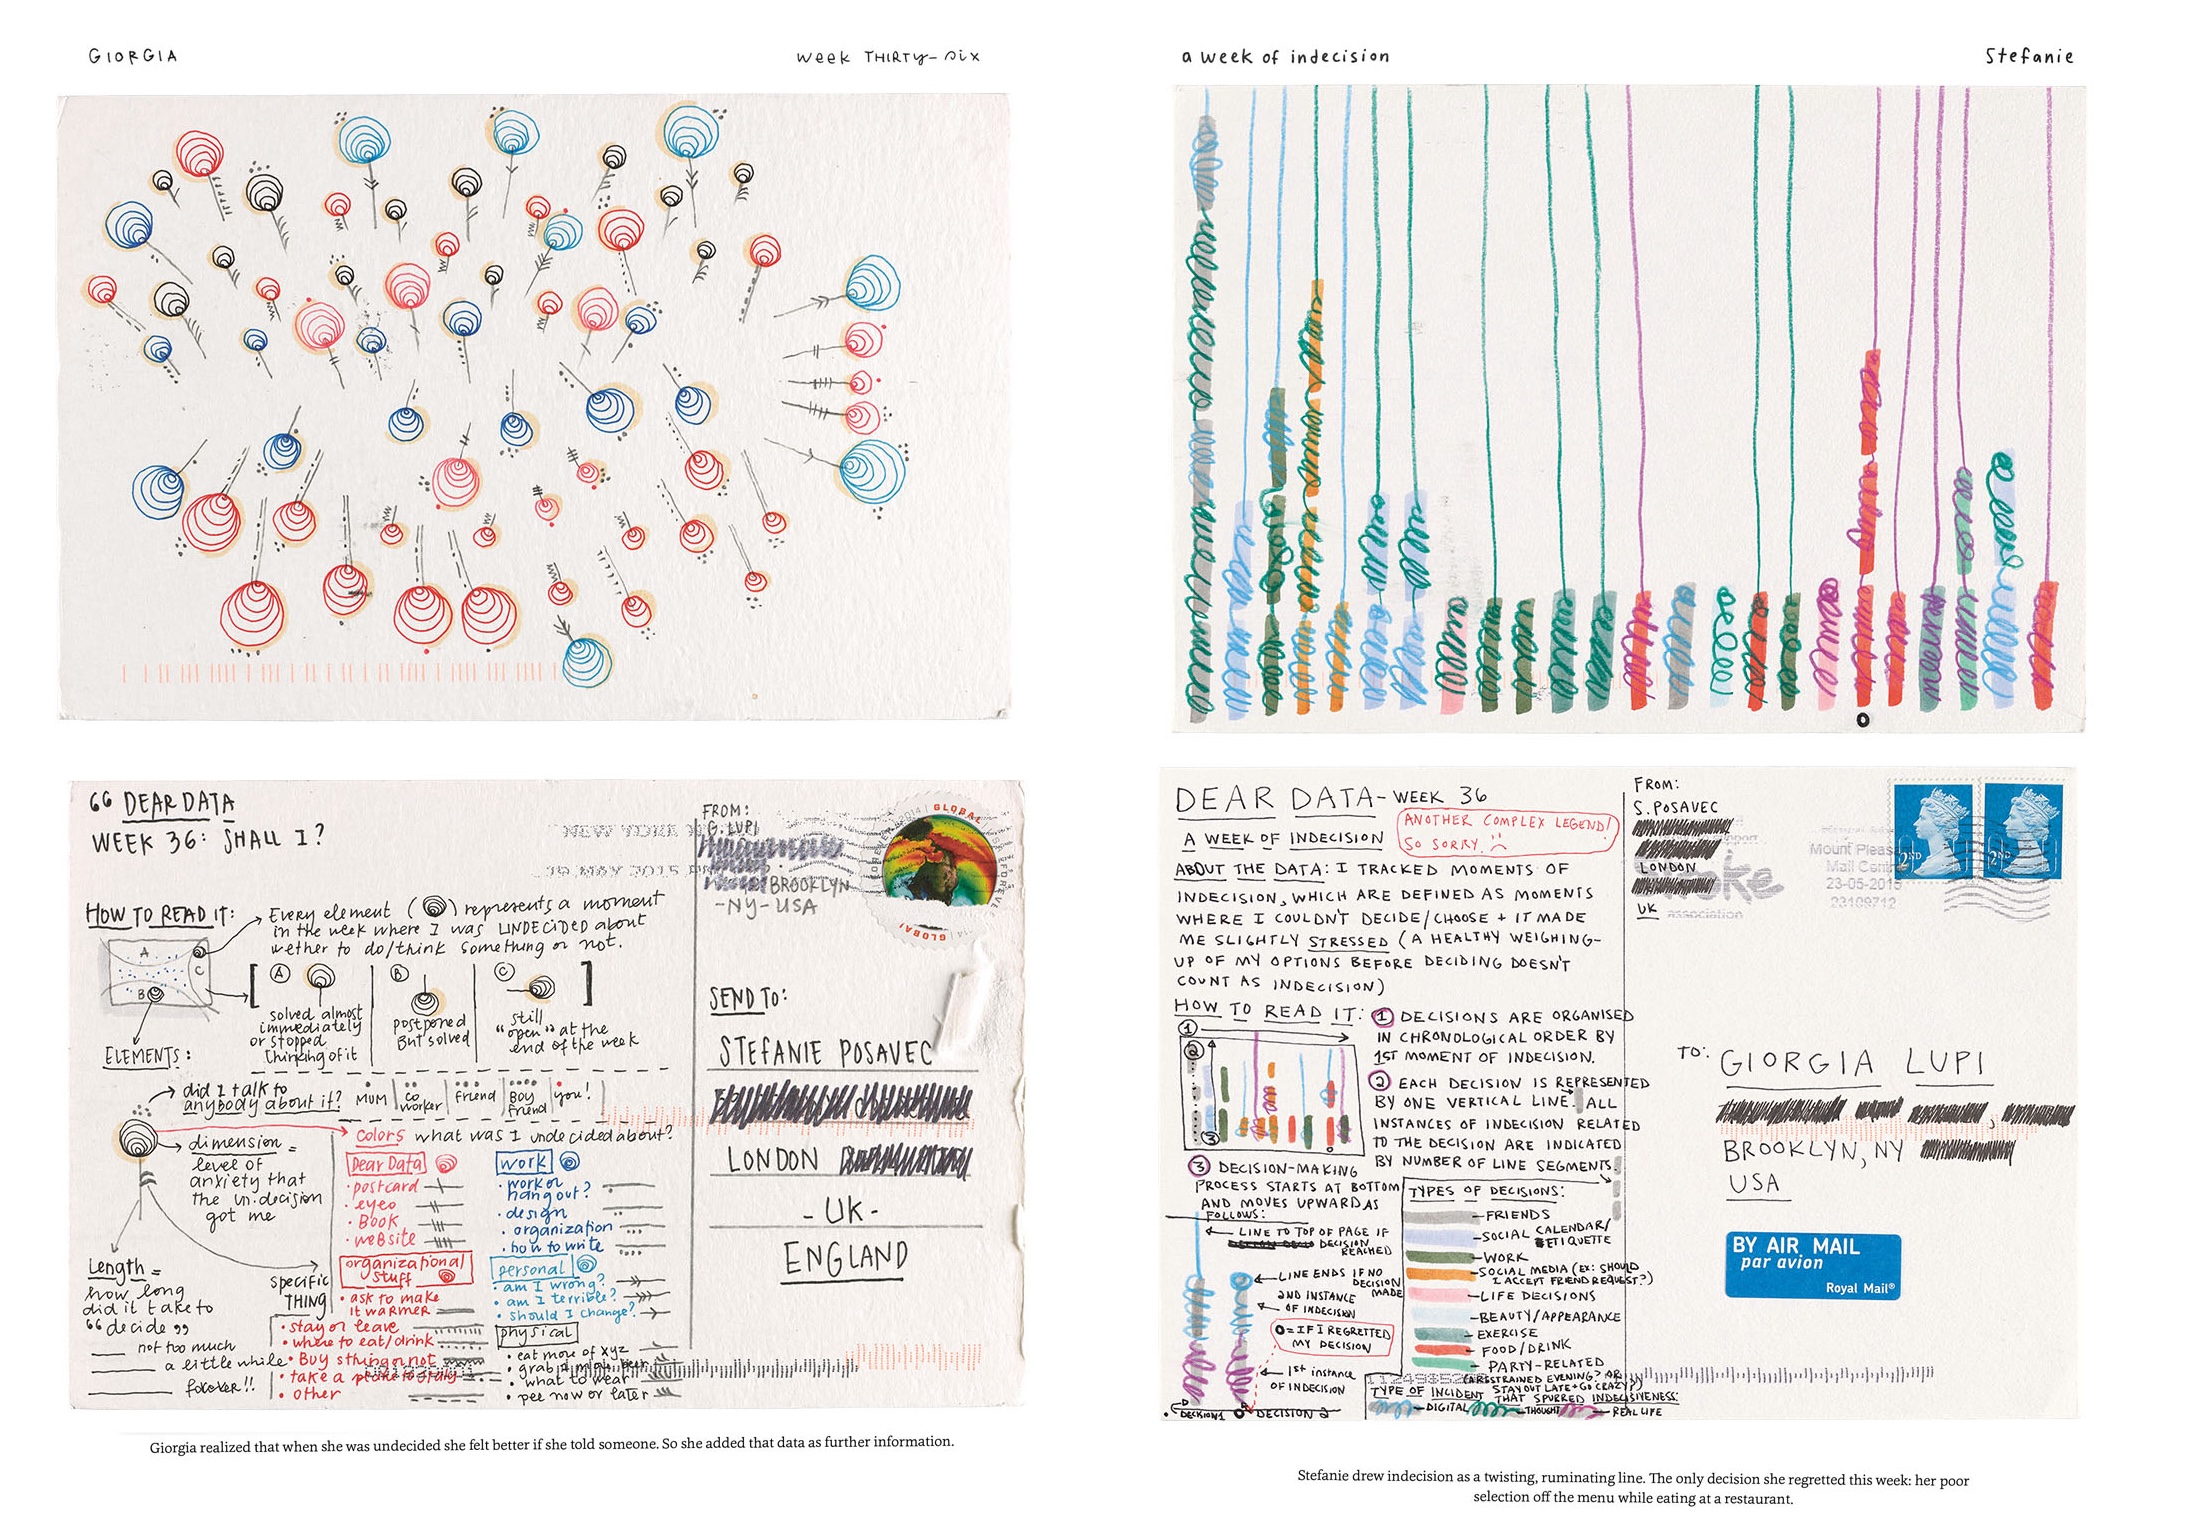 GIORGIA
week THIRTY-six
a week of indecision
Stefanie
DEAR DATA
WEEK 36: SHALL I?
HOW TO READ IT:
Every element ( ) represents a moment
in the week where I was UNDECIDED about
wether to do/think something or not.
A
C
B
A
solved almost
immediately
or stopped
thinking of it
B
postponed
But solved
C
still
"open" at the
end of the week
ELEMENTS:
did I talk to
anybody about it?
MUM
co worker
friend
Boy friend
you!
dimension =
level of
anxiety that
the un.decision
got me
Length =
how long
did it take to
"decide"
not too much
a little while
forever!!
specific
THING
colors what was I undecided about?
Dear Data
• postcard
• eyeo
• Book
• website
organizational
stuff
• ask to make
it warmer
• stay or leave
• where to eat/drink
• Buy sthing or not
• other
work
• work or
hang out?
• design
• organization
• how to write
personal
• am I wrong?
• am I terrible?
• should I change?
physical
• eat more of xyz
• what to wear
• pee now or later
NEW YORK
19 MAY 2015
FROM:
G. LUPI
BROOKLYN
-NY- USA
GLOBAL
FOREVER
GLOBAL
SEND TO:
STEFANIE POSAVEC
LONDON
- UK -
ENGLAND
Giorgia realized that when she was undecided she felt better if she told someone. So she added that data as further information.
DEAR DATA - WEEK 36
A WEEK OF INDECISION
ANOTHER COMPLEX LEGEND!
SO SORRY.
ABOUT THE DATA: I TRACKED MOMENTS OF
INDECISION, WHICH ARE DEFINED AS MOMENTS
WHERE I COULDN'T DECIDE/CHOOSE + IT MADE
ME SLIGHTLY STRESSED (A HEALTHY WEIGHING-
UP OF MY OPTIONS BEFORE DECIDING DOESN'T
COUNT AS INDECISION)
HOW TO READ IT:
1
2
3
1 DECISIONS ARE ORGANISED
IN CHRONOLOGICAL ORDER BY
1ST MOMENT OF INDECISION.
2 EACH DECISION IS REPRESENTED
BY ONE VERTICAL LINE. ALL
INSTANCES OF INDECISION RELATED
TO THE DECISION ARE INDICATED
BY NUMBER OF LINE SEGMENTS.
3 DECISION-MAKING
PROCESS STARTS AT BOTTOM
AND MOVES UPWARD AS
FOLLOWS:
LINE TO TOP OF PAGE IF
DECISION
REACHED
LINE ENDS IF NO
DECISION
MADE
2ND INSTANCE
OF INDECISION
O = IF I REGRETTED
MY DECISION
1ST instance
OF INDECISION
DECISION 1
DECISION 2
TYPES OF DECISIONS:
FRIENDS
SOCIAL CALENDAR/
ETIQUETTE
WORK
SOCIAL MEDIA (EX: SHOULD
I ACCEPT FRIEND REQUEST?)
LIFE DECISIONS
BEAUTY/APPEARANCE
EXERCISE
FOOD/DRINK
PARTY-RELATED
(A RESTRAINED EVENING? OR
STAY OUT LATE + GO CRAZY?)
TYPE OF INCIDENT
THAT SPURRED INDECISIVENESS:
DIGITAL
THOUGHT
REAL LIFE
FROM:
S. POSAVEC
LONDON
UK
association
Mount Pleasant
Mail Centre
23-05-2015
23109712
2ND
2ND
TO: GIORGIA LUPI
BROOKLYN, NY
USA
BY AIR MAIL
par avion
Royal Mail®
Stefanie drew indecision as a twisting, ruminating line. The only decision she regretted this week: her poor
selection off the menu while eating at a restaurant.